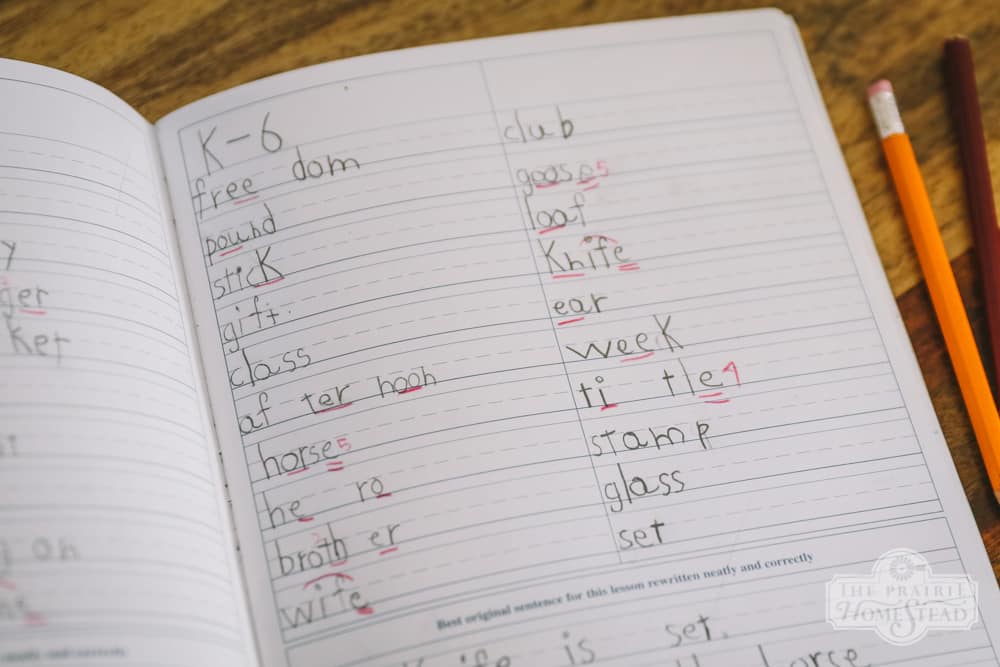 y
ger
ket
on
K-6
free dom
pound
stick
gift.
class
af ter noon
horse5
he ro
broth er
wife
club
goose5
loaf
Knife
ear
week
ti tle4
stamp
glass
set
Best original sentence for this lesson rewritten neatly and correctly
is set.
horse
THE PRAIRIE
HOMESTEAD